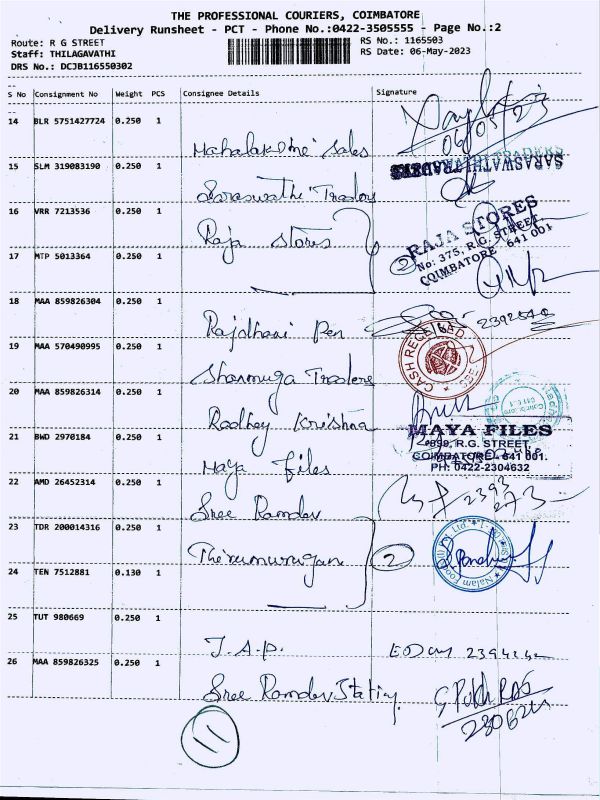 THE PROFESSIONAL COURIERS, COIMBATORE
Delivery Runsheet - PCT - Phone No.:0422-3505555 - Page No.:2
Route: R G STREET
Staff: THILAGAVATHI
DRS No.: DCJB116550302
RS No.: 1165503
RS Date: 06-May-2023
S No Consignment No Weight PCS Consignee Details Signature
14 BLR 5751427724 0.250 1
06/05/23
Mahalakshmi Sales
15 SLM 319083190 0.250 1
SARASWATHI TRADERS
Saraswathi Traders
16 VRR 7213536 0.250 1
Raja Stores
RAJA STORES
No: 375, R.G. STREET,
COIMBATORE 641 001
2
17 MTP 5013364 0.250 1
18 MAA 859826304 0.250 1
Rajdhani Pen
19 MAA 570490995 0.250 1
CASH RECEIVED
Shanmuga Traders
20 MAA 859826314 0.250 1
Radhey Krishna
21 BWD 2970184 0.250 1
MAYA FILES
R.G. STREET,
COIMBATORE - 641 001.
PH: 0422-2304632
Maya Files
22 AMD 26452314 0.250 1
2393
273
Sree Ramdev
23 TDR 200014316 0.250 1
Thirumurugan
2
24 TEN 7512881 0.130 1
25 TUT 980669 0.250 1
J.A.P.
26 MAA 859826325 0.250 1
Sree Ramdev
11